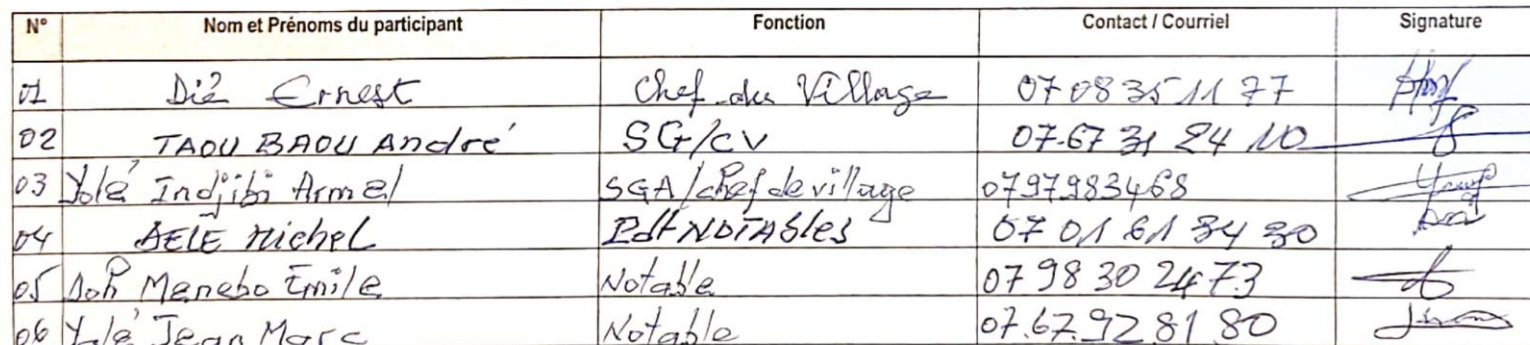 N° Nom et Prénoms du participant Fonction Contact / Courriel Signature
01 Dié Ernest Chef du Village 07 08 35 11 77
02 TAOU BAOU André SG/CV 07.67 31 24 10
03 Yolé Indjibi Armel SGA/chef de village 0797983468
04 Michel Pdt NOTAbles 07 01 61 34 30
05 Doh Menebo Emile Notable 07 98 30 24 73
06 Yolé Jean Marc Notable 07.67.92 81 80